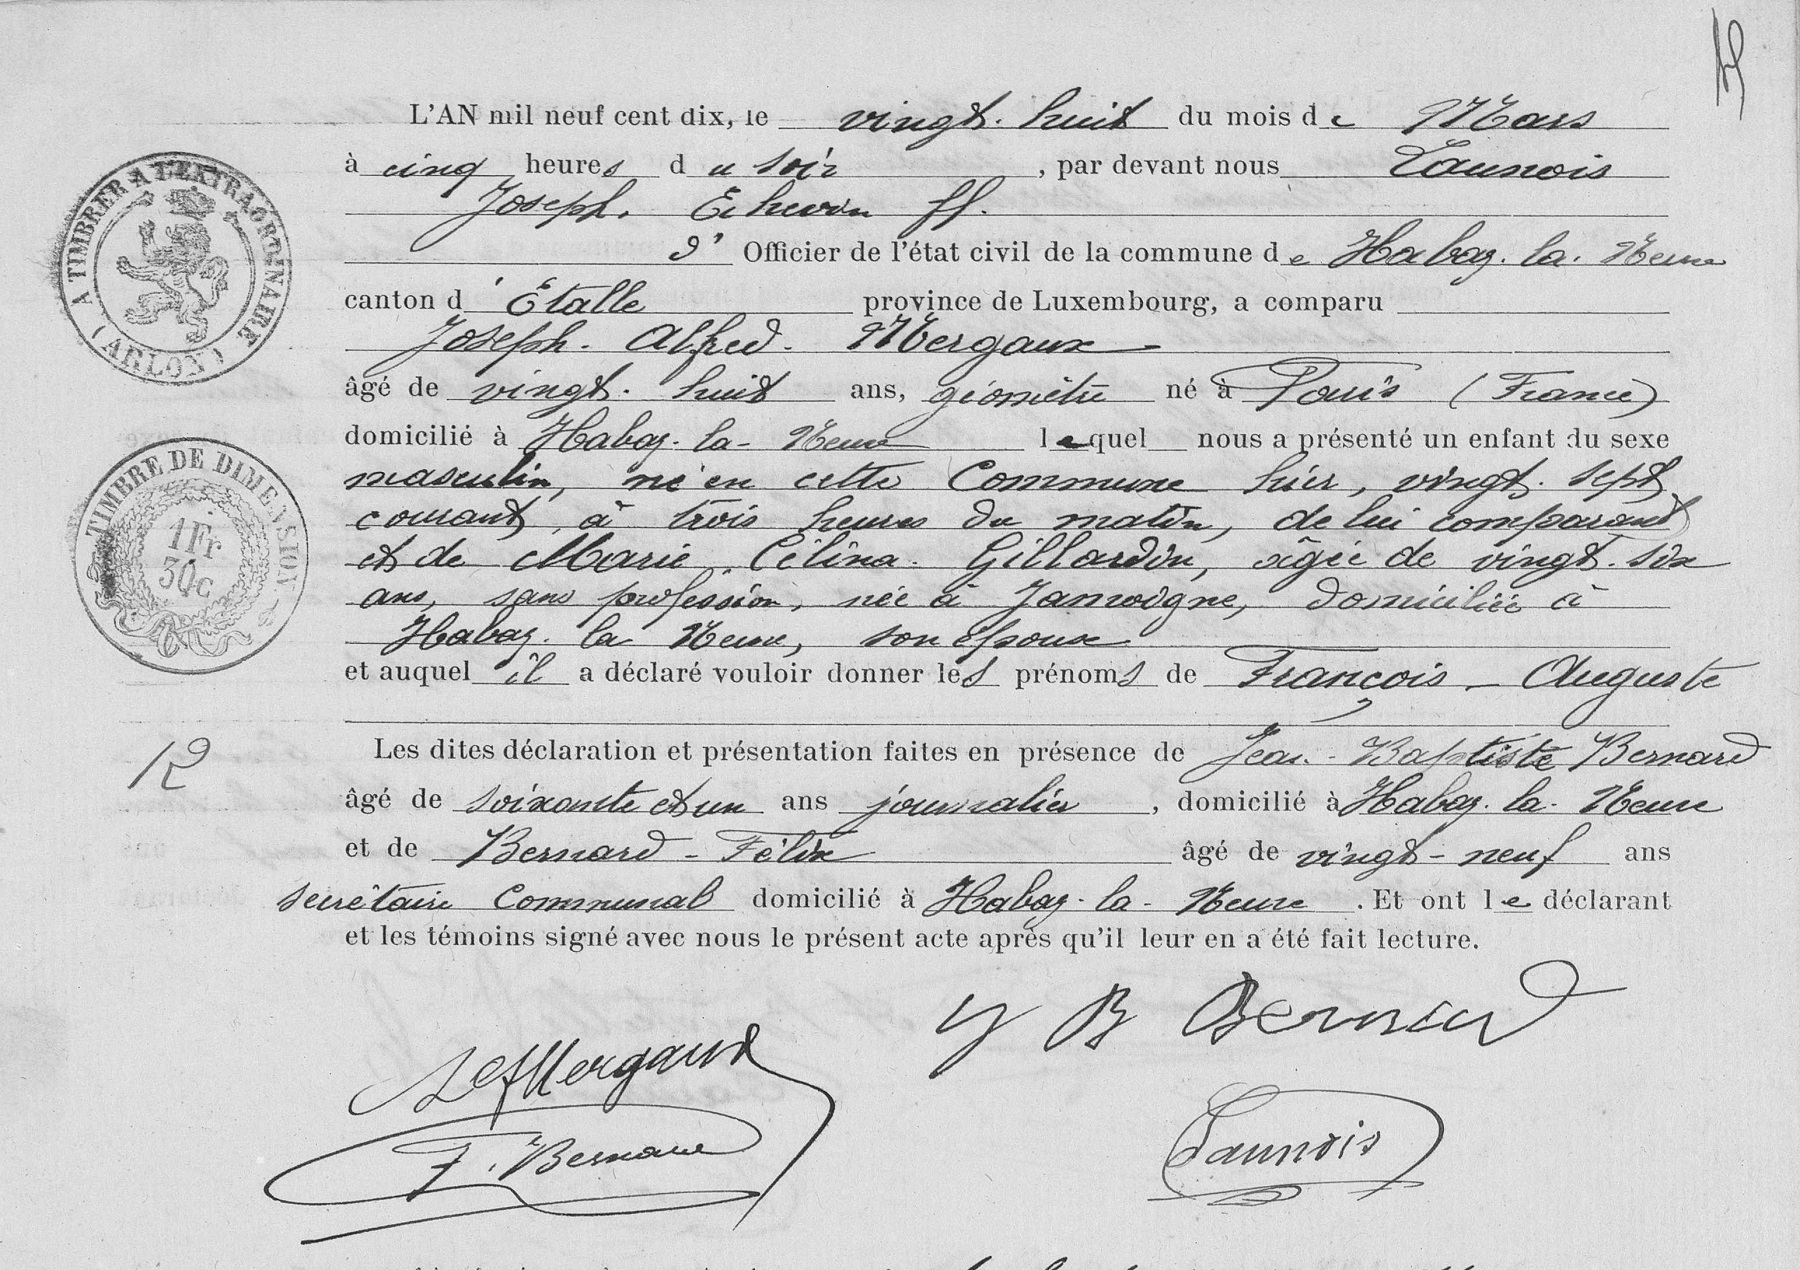 L'AN mil neuf cent dix, le vingt-huit du mois de Mars
à cinq heures du soir, par devant nous Launois
Joseph, Echevin ff.
d' Officier de l'état civil de la commune de Habay-la-Neuve
canton d'Etalle province de Luxembourg, a comparu
Joseph-Alfred-Mergaux
âgé de vingt-huit ans, géomètre né à Paris (France)
domicilié à Habay-la-Neuve lequel nous a présenté un enfant du sexe
masculin, né en cette Commune hier, vingt-sept
courant, à trois heures du matin, de lui comparant
et de Marie Célina Gillardin, âgée de vingt-six
ans, sans profession, née à Jamoigne, domiciliée à
Habay-la-Neuve, son épouse
et auquel il a déclaré vouloir donner les prénoms de François-Auguste
Les dites déclaration et présentation faites en présence de Jean-Baptiste Bernard
âgé de soixante et un ans journalier, domicilié à Habay-la-Neuve
et de Bernard-Félix âgé de vingt-neuf ans
secrétaire Communal domicilié à Habay-la-Neuve. Et ont le déclarant
et les témoins signé avec nous le présent acte après qu'il leur en a été fait lecture.
J B Bernard
Mergaux
F. Bernard
Launois
A TIMBRER A L'EXTRAORDINAIRE
(ARLON)
TIMBRE DE DIMENSION
1 Fr
30 c
12